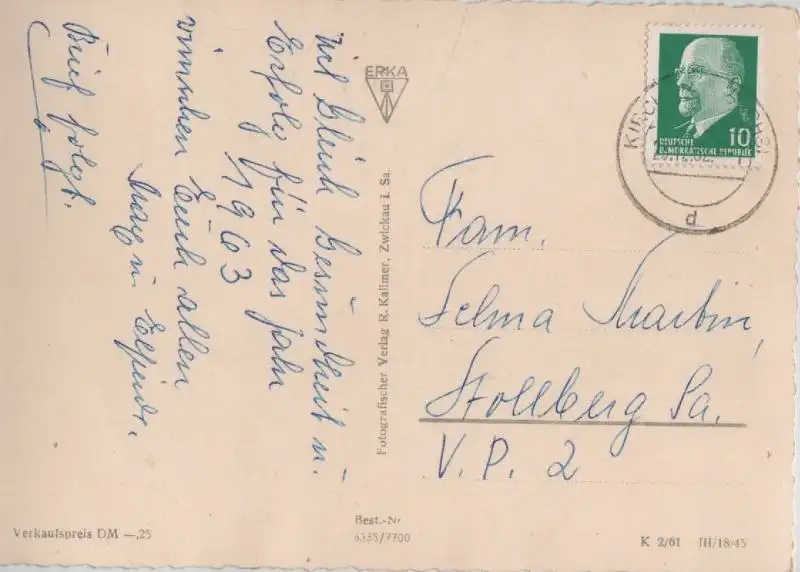 Viel Glück Gesundheit u.
Erfolg für das Jahr
1963
wünschen Euch allen
u.
Brief folgt.
ERKA
Fotografischer Verlag R. Kallmer, Zwickau i. Sa.
DEUTSCHE
DEMOKRATISCHE REPUBLIK
10
d
Fam.
Selma Martin,
Stollberg Sa.
V. P. 2
Verkaufspreis DM —,25
Best.-Nr
6335/7700
K 2/61 III/18/45